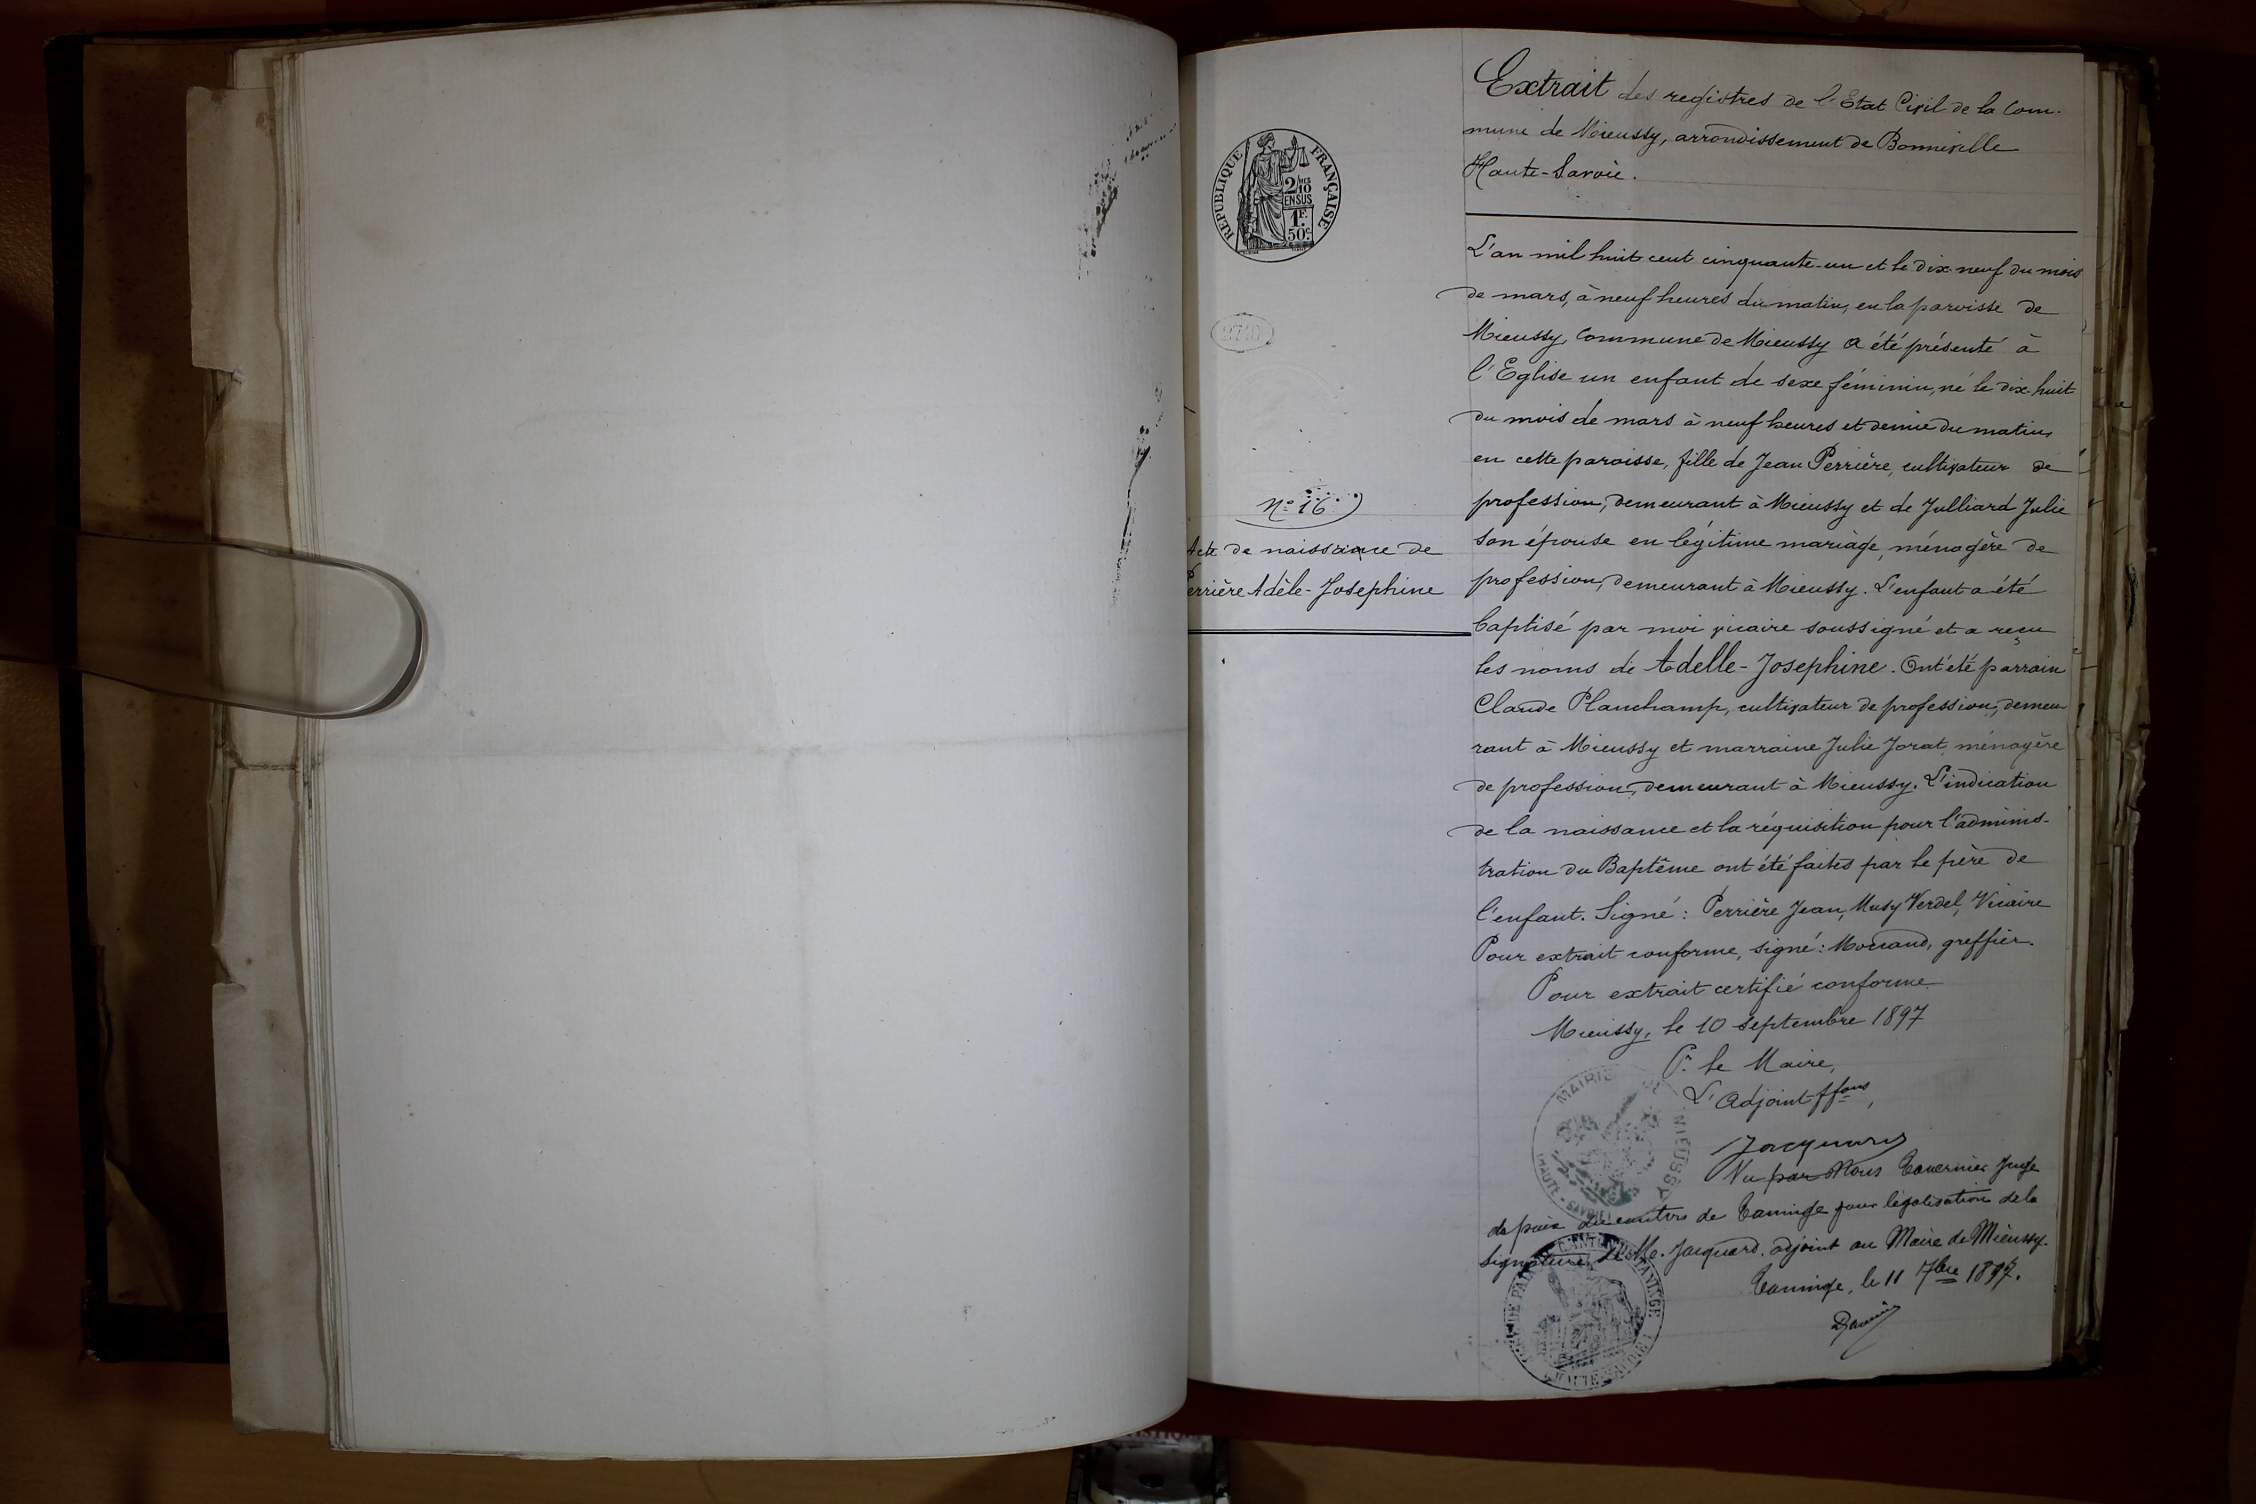 REPUBLIQUE FRANÇAISE
2/10
EN SUS
1F.
50c.
N° 16
Acte de naissance de
Perrière Adèle-Josephine
Extrait des registres de l'Etat Civil de la Com-
mune de Mieussy, arrondissement de Bonneville
Haute-Savoie.
L'an mil huit cent cinquante-un et le dix-neuf du mois
de mars, à neuf heures du matin, en la paroisse de
Mieussy, Commune de Mieussy a été présenté à
l'Eglise un enfant de sexe féminin, né le dix huit
du mois de mars à neuf heures et demie du matin,
en cette paroisse, fille de Jean Perrière, cultivateur de
profession, demeurant à Mieussy et de Julliard Julie
son épouse en légitime mariage, ménagère de
profession, demeurant à Mieussy. L'enfant a été
baptisé par moi vicaire soussigné et a reçu
les noms de Adelle-Josephine. Ont été parrain
Claude Planchamp, cultivateur de profession, demeu
rant à Mieussy et marraine Julie Jorat, ménagère
de profession, demeurant à Mieussy. L'indication
de la naissance et la réquisition pour l'adminis-
tration du Baptême ont été faites par le père de
l'enfant. Signé: Perrière Jean, Musy Verdel, Vicaire
Pour extrait conforme, signé: greffier.
Pour extrait certifié conforme
Mieussy, le 10 septembre 1897
Pr. le Maire,
L'Adjoint ffons,
MAIRIE MIEUSSY
(HAUTE-SAVOIE)
Jacquard
Vu par Nous Tavernier Juge
de paix du canton de Taninge pour légalisation de la
signature de M. Jacquard. adjoint au Maire de Mieussy.
Taninge, le 11 7bre 1897.
DE PAIX CANTON TANINGE
HAUTE-SAVOIE